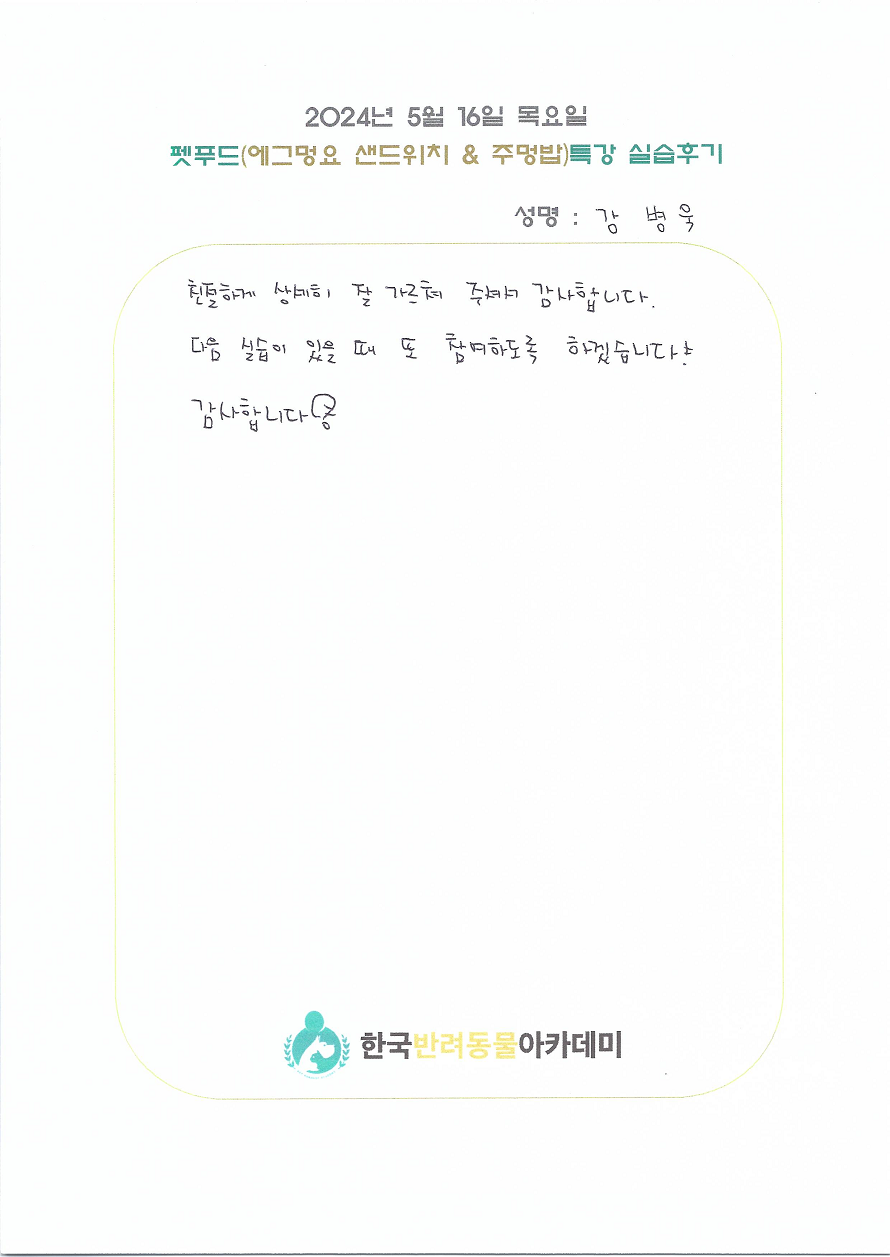 2024년 5월 16일 목요일
펫푸드(에그멍요 샌드위치 & 주멍밥)특강 실습후기
성명 : 강 병욱
친절하게 상세히 잘 가르쳐 주셔서 감사합니다.
다음 실습이 있을 때 또 참여하도록 하겠습니다!
감사합니다
한국반려동물아카데미